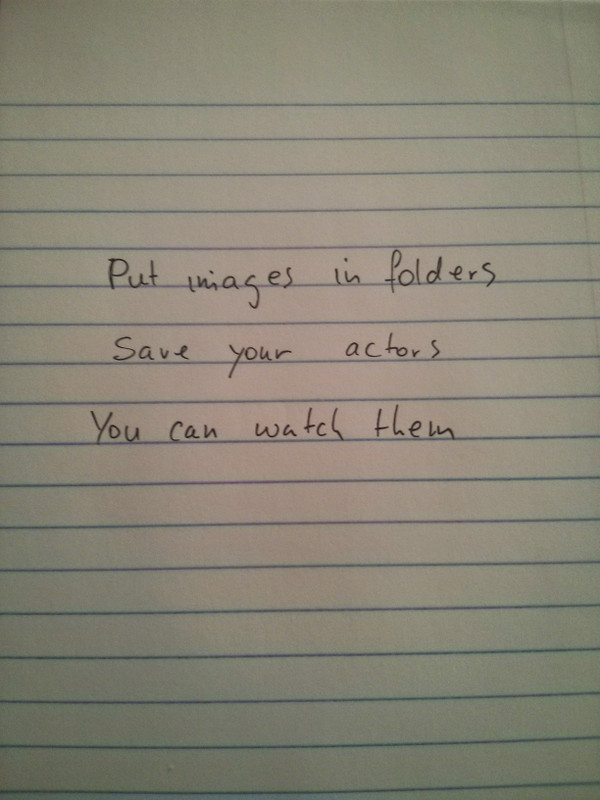 Put images in folders
Save your actors
You can watch them